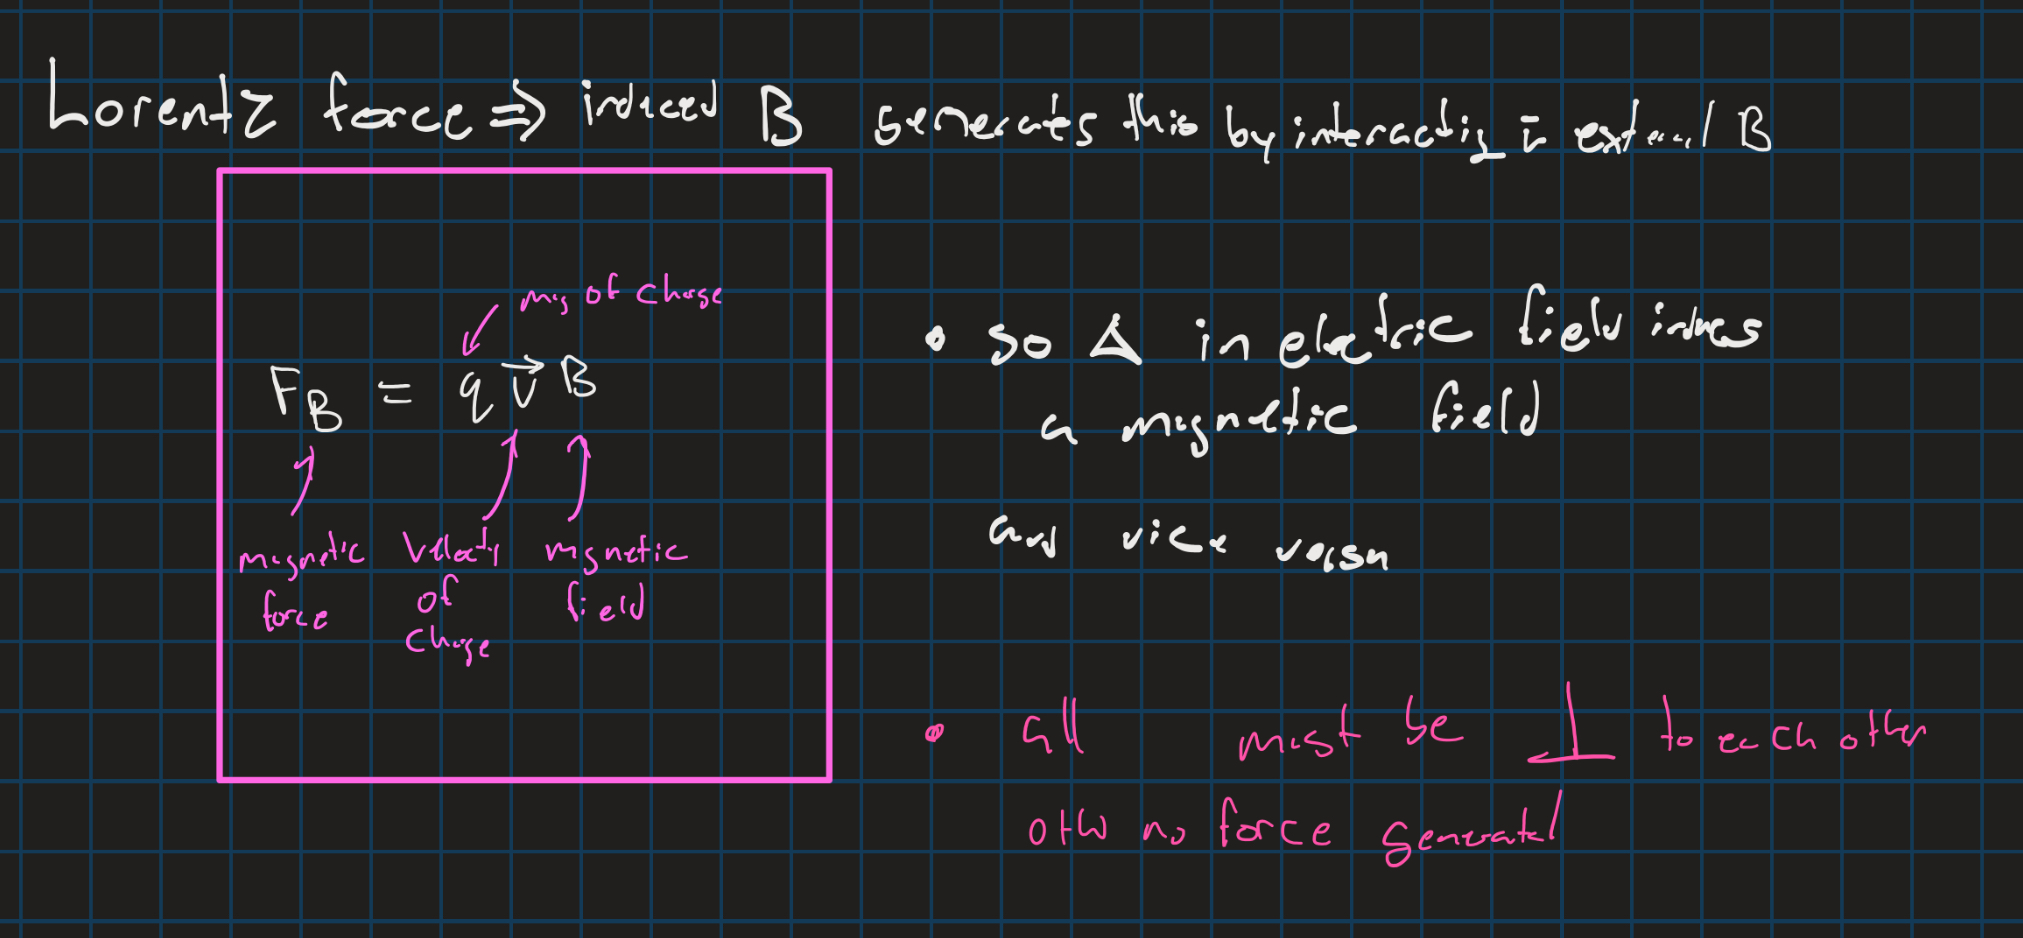 Lorentz force ⇒ induced B generates this by interacting c̄ external B
mag of charge
F_B = q v⃗ B
magnetic force
velocity of charge
magnetic field
• so Δ in electric field induces
a magnetic field
and vice versa
• all must be ⊥ to each other
othw no force generated